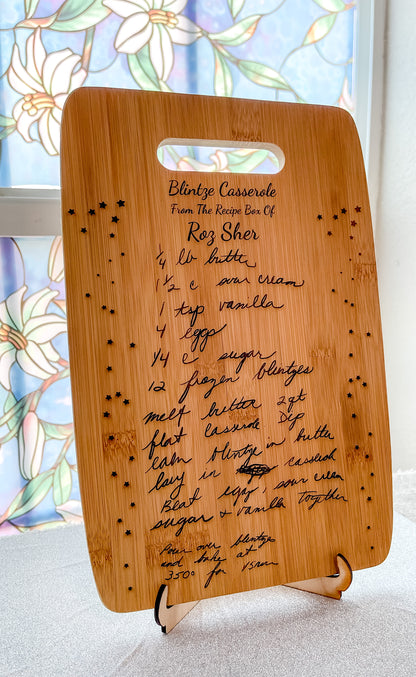 Blintze Casserole
From The Recipe Box Of
Roz Sher
1/4 lb butter
1 1/2 c sour cream
1 tsp vanilla
4 eggs
1/4 c sugar
12 frozen blintzes
melt butter 2qt
flat casserole Dip
each blintze in butter
lay in casserole
Beat eggs, sour cream
sugar + vanilla together
Pour over blintze
and bake at
350° for